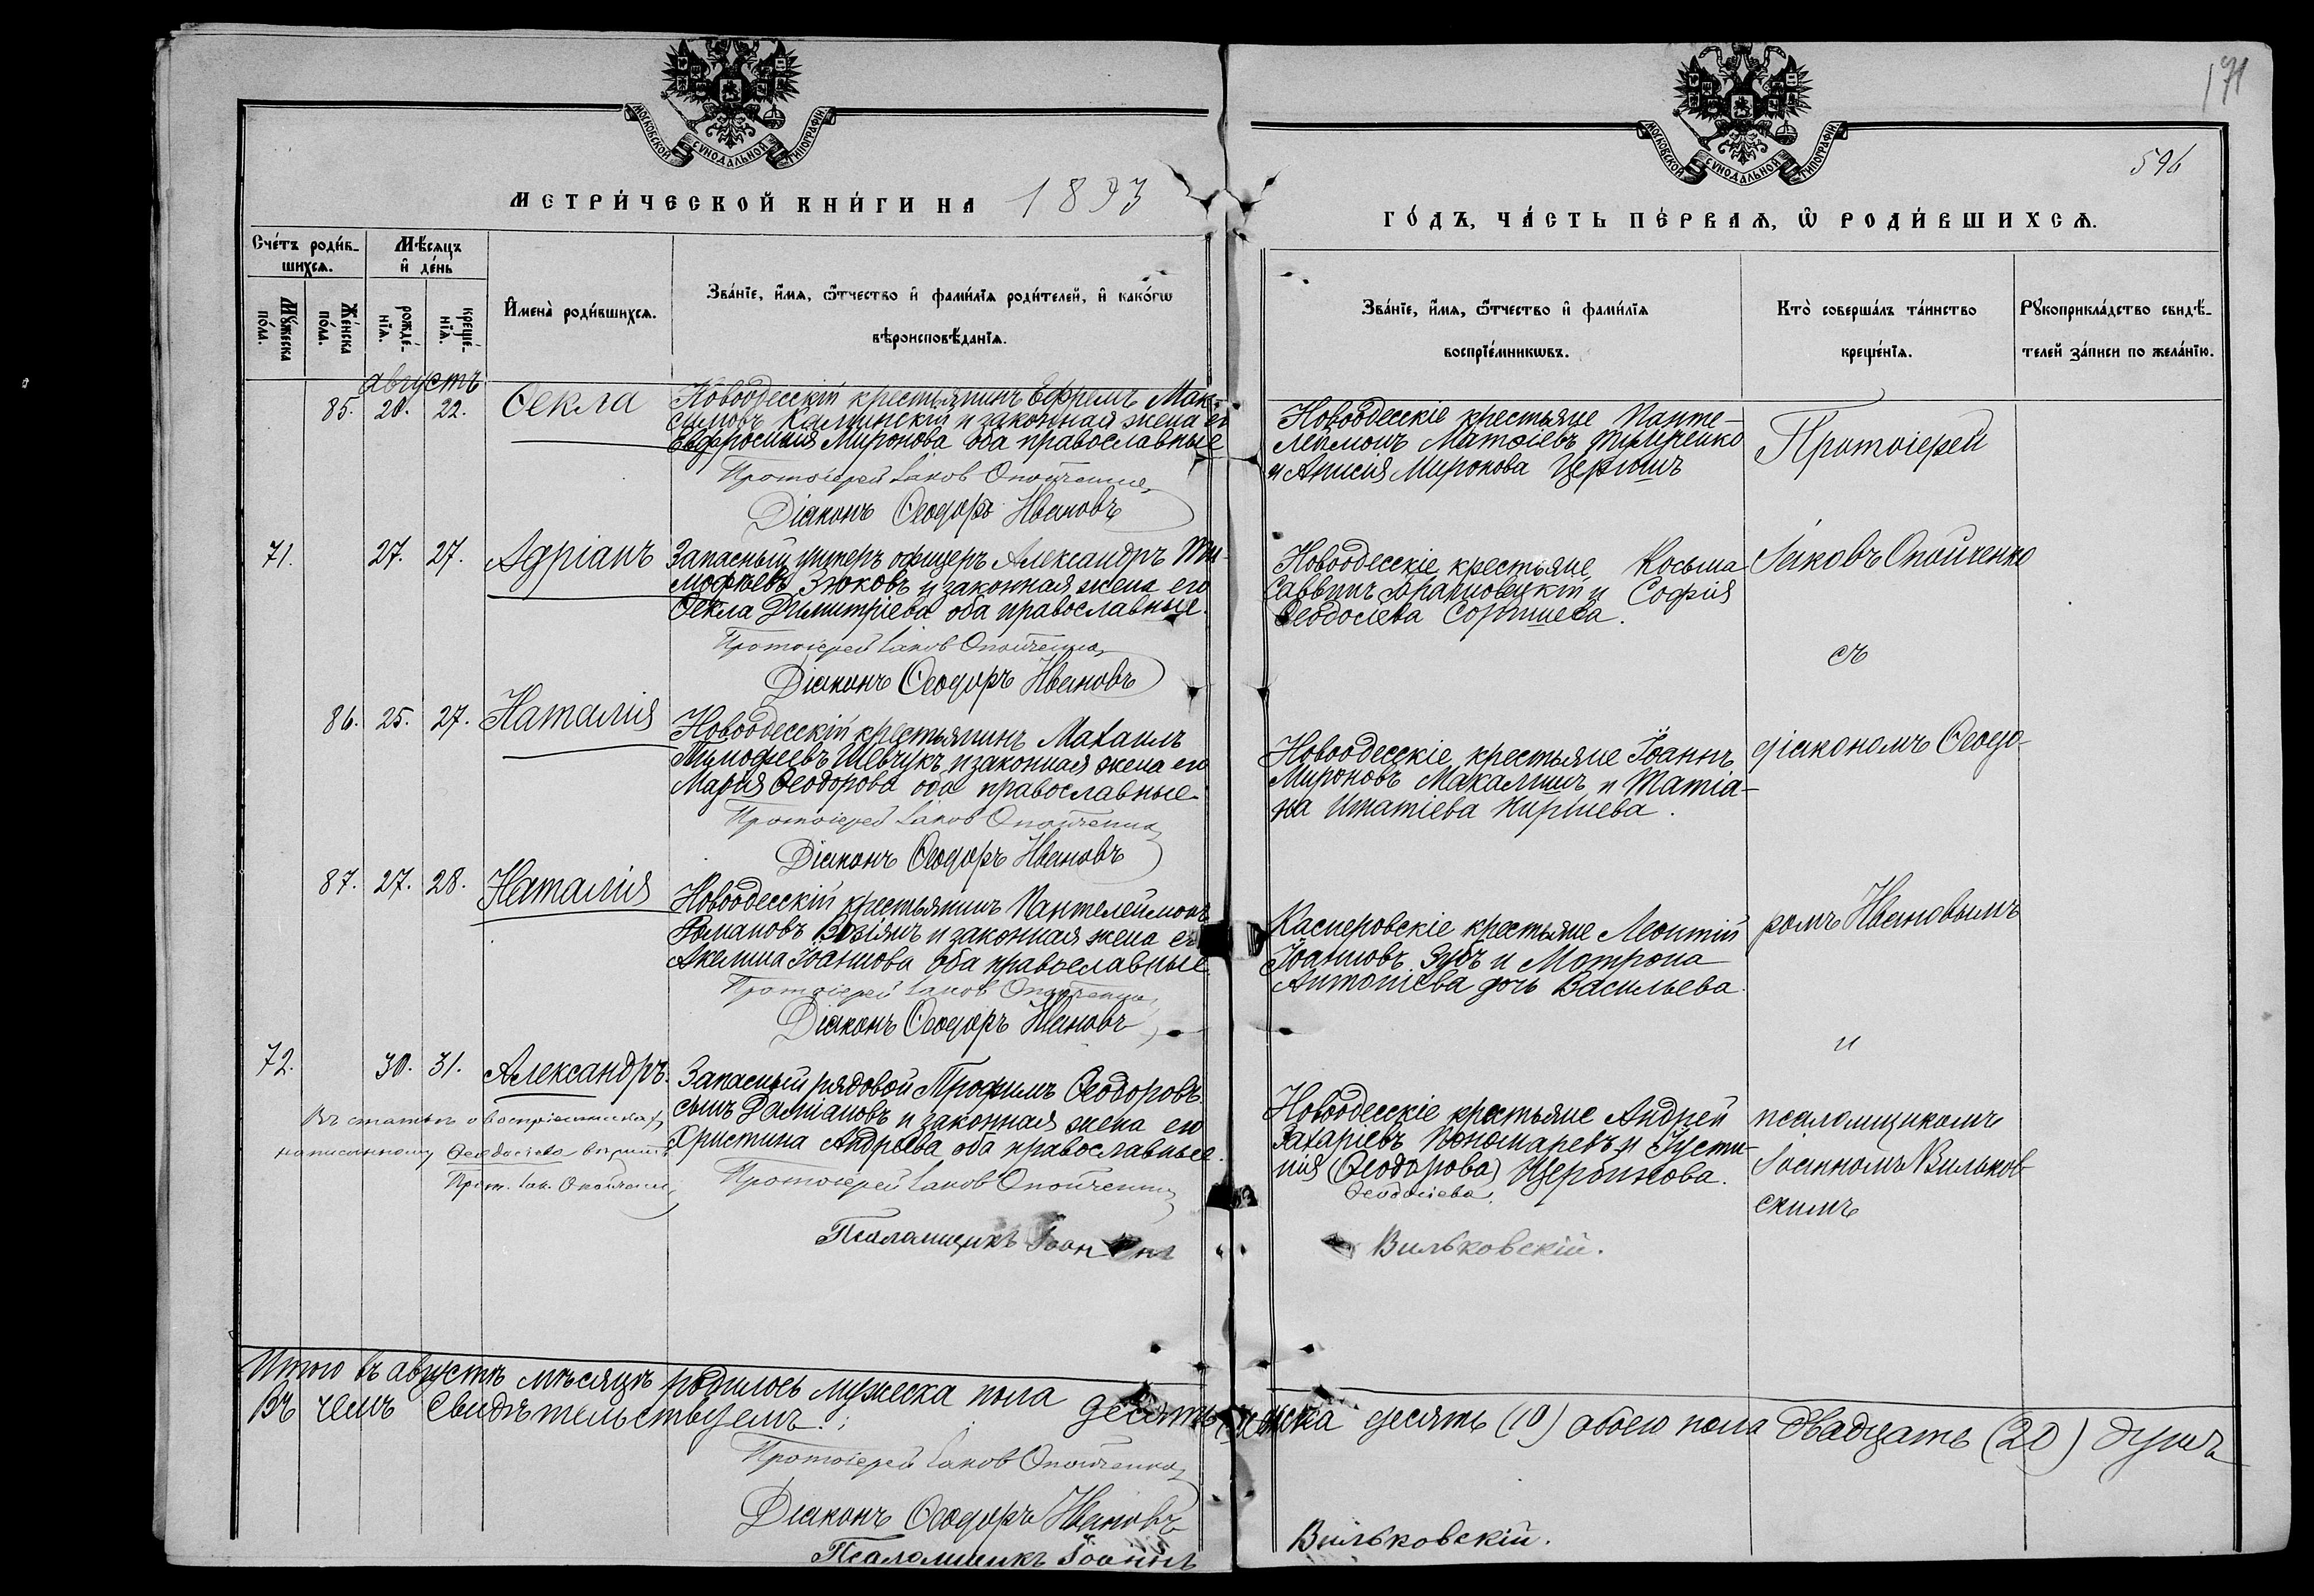 171
596
МОСКОВСКОЙ СѴНОДАЛЬНОЙ ТИПОГРАФІИ
МОСКОВСКОЙ СѴНОДАЛЬНОЙ ТИПОГРАФІИ
МЕТРИ́ЧЕСКОЙ КНИ́ГИ НА 1893
ГО́ДЪ, ЧА́СТЬ ПЕ́РВАѦ, Ѽ РОДИ́ВШИХСѦ.
Сче́тъ роди́в-
шихсѧ.
Мꙋ́жеска по́ла.
Же́нска по́ла.
Мѣ́сѧцъ
и҆ де́нь
рожде́-
нїѧ.
креще́-
нїѧ.
И҆мена̀ роди́вшихсѧ.
Зва́нїе, и҆́мѧ, ѻ҆́тчество и҆ фами́лїѧ роди́телей, и҆ како́гѡ
вѣроисповѣ́данїѧ.
Зва́нїе, и҆́мѧ, ѻ҆́тчество и҆ фами́лїѧ
воспрїе́мникѡвъ.
Кто̀ соверша́лъ та́инство
креще́нїѧ.
Рꙋкоприкла́дство свидѣ́-
телей за́писи по жела́нїю.
августъ
85. 20. 22. Ѳекла
Новоодесскій крестьянинъ Ефремъ Мак-
симовъ Калинскій и законная жена его
Евфросинія Миронова оба православные
Протоіерей Іаков Опойченко
Діаконъ Ѳеодоръ Ивановъ
Новоодесскіе крестьяне Панте-
леймонъ Матѳіевъ
и Анисія Миронова
Протоіерей
71. 27. 27. Адріанъ
Запасный унтеръ офицеръ Александръ Ти-
мофѣевъ Зюковъ и законная жена его
Ѳекла Димитріева оба православные.
Протоіерей Іаков Опойченко
Діаконъ Ѳеодоръ Ивановъ
Новоодесскіе крестьяне Косьма
Саввинъ и Софія
Ѳеодосіева
Іаковъ Опойченко
съ
86. 25. 27. Наталія
Новоодесскій крестьянинъ Михаилъ
Тимофеевъ Шевчукъ и законная жена его
Марія Ѳеодорова оба православные
Протоіерей Іаков Опойченко
Діаконъ Ѳеодоръ Ивановъ
Новоодесскіе крестьяне Іоаннъ
Мироновъ и Татіа-
на Игнатіева
діакономъ Ѳеодо-
87. 27. 28. Наталія
Новоодесскій крестьянинъ Пантелеймонъ
Романовъ Возіянъ и законная жена его
Акелина Іоаннова оба православные
Протоіерей Іаков Опойченко
Діаконъ Ѳеодоръ Ивановъ
Касперовскіе крестьяне Леонтій
Іоанновъ Зубъ и Мотрона
Антоніева дочь Васильева.
ромъ Ивановымъ
и
72. 30. 31. Александръ.
Запасный рядовой Трофимъ Ѳеодоровъ
сынъ Даміановъ и законная жена его
Христина Андреева оба православные.
Протоіерей Іаков Опойченко
Псаломщикъ Іоаннъ
Въ статьѣ о воспріемникахъ
написанному Ѳеодосіева вѣрить
Прот. Іак. Опойченко
Новоодесскіе крестьяне Андрей
Захаріевъ Пономаревъ и Іусти-
нія (Ѳеодорова) Щербинова.
Ѳеодосіева
Вильковскій.
псаломщикомъ
Іоанномъ Вильков-
скимъ
Итого въ августѣ мѣсяцѣ родилось мужеска пола десять женска десять (10) обоего пола двадцать (20) душъ
Въ чемъ свидѣтельствуемъ:
Протоіерей Іаков Опойченко
Діаконъ Ѳеодоръ Ивановъ
Псаломщикъ Іоаннъ Вильковскій.